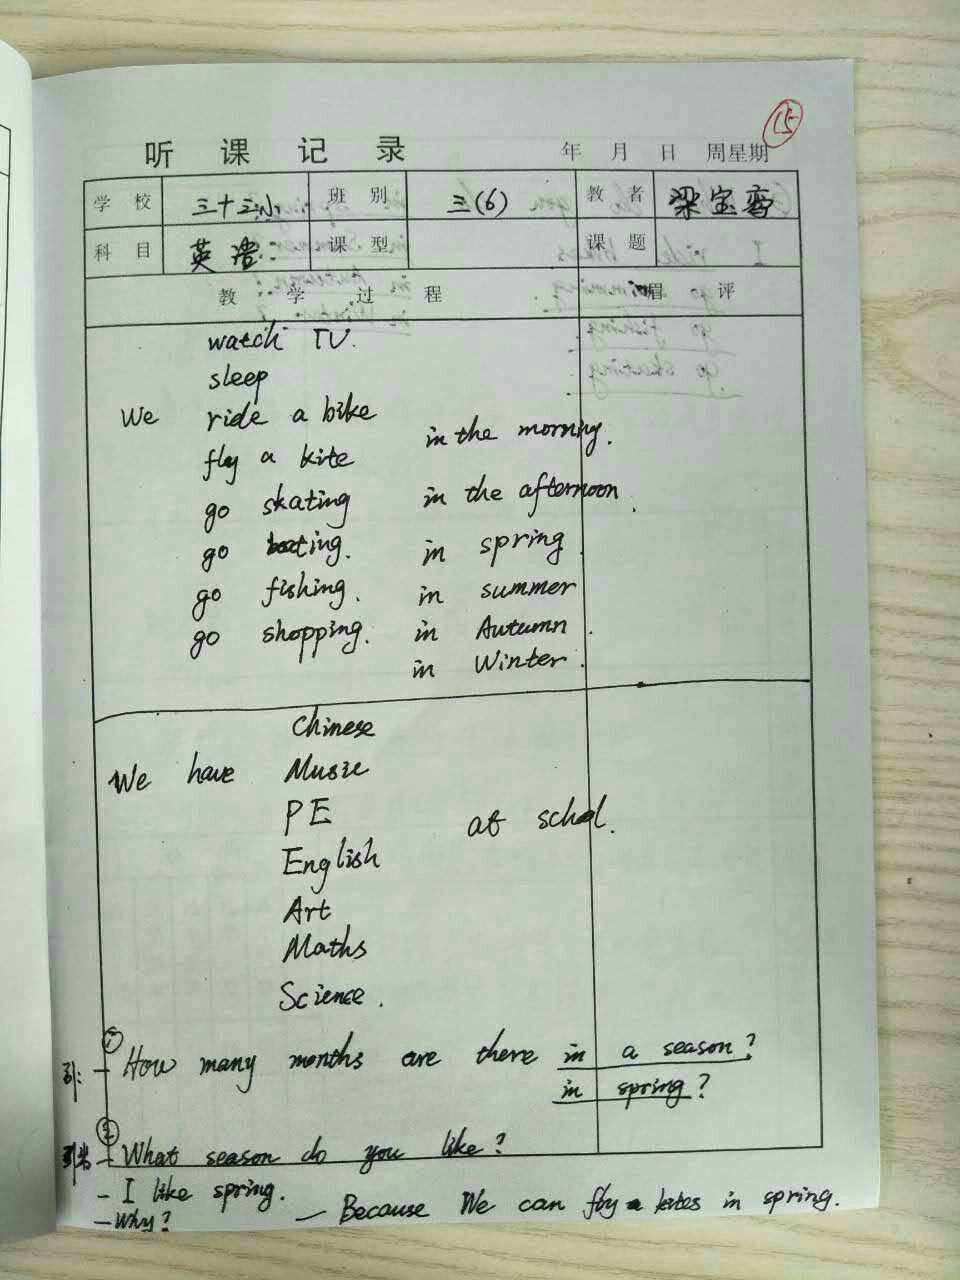 15
听 课 记 录 年 月 日 周星期
学 校 三十三小 班 别 三(6) 教 者 梁宝
科 目 英语 课 型 课 题
教 学 过 程 眉 评
watch TV.
sleep
We ride a bike
in the morning.
fly a kite
go skating in the afternoon.
go boating. in spring.
go fishing. in summer
go shopping. in Autumn.
in Winter.
Chinese
We have Music
PE at schol.
English
Art
Maths
Science.
①
引: - How many months are there in a season?
in spring?
②
- What season do you like?
- I like spring.
- Why? — Because We can fly kites in spring.